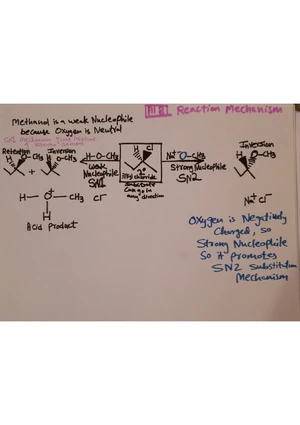 Reaction Mechanism
Methanol is a weak Nucleophile
because Oxygen is Neutral
Retention
Inversion
H O-CH3
H O-CH3
+
H-O-CH3
weak
Nucleophile
SN1
H Cl
2°
Alkyl chloride
substrate
Can go in
any direction
Na+ O-CH3
Strong Nucleophile
SN2
Inversion
H O-CH3
H-O-CH3
+
H
Cl-
Acid Product
Na+ Cl-
Oxygen is Negatively
Charged, so
Strong Nucleophile
So it promotes
SN2 Substitution
Mechanism